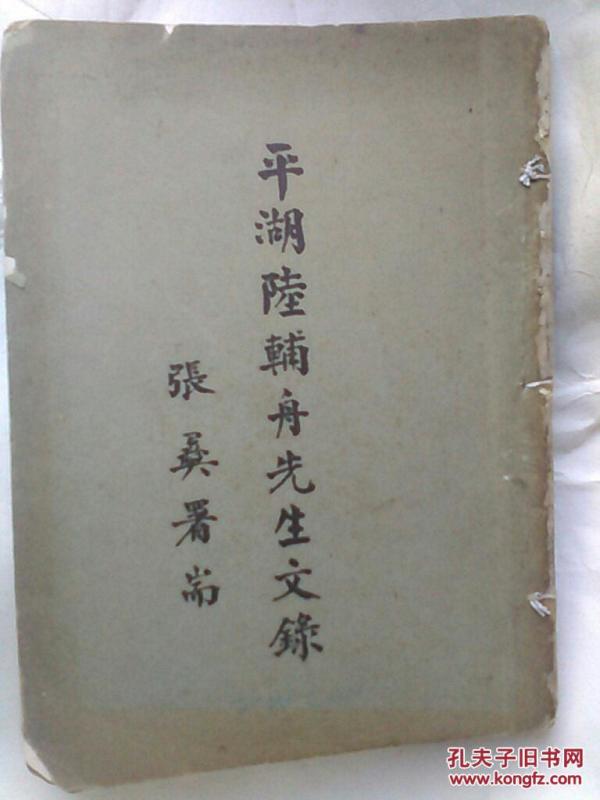 平湖陸輔舟先生文錄
張奚署耑
孔夫子旧书网
www.kongfz.com